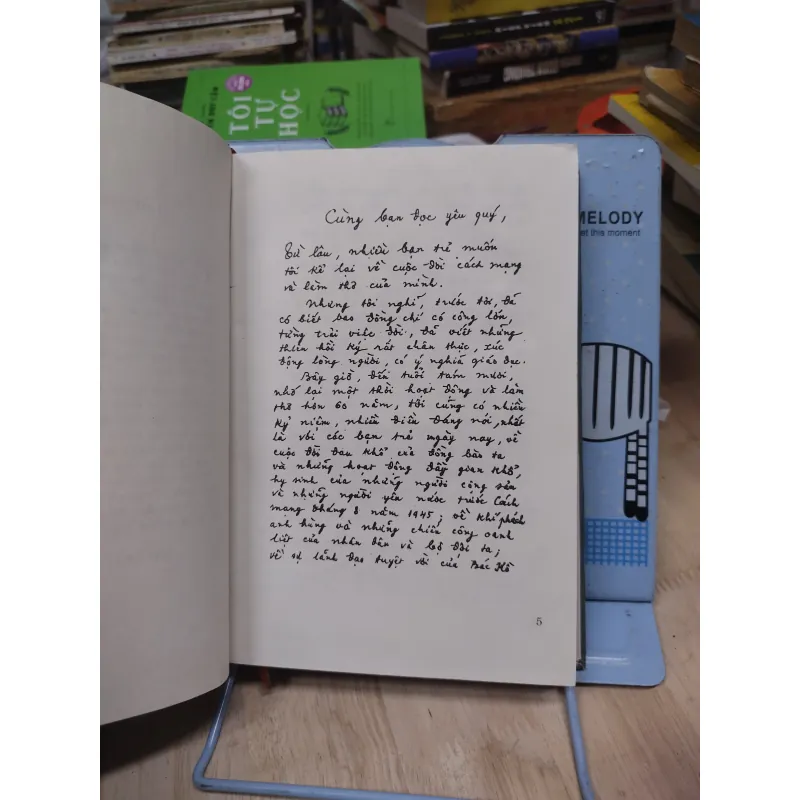 TÔI
TỰ
HỌC
MELODY
this moment
Cùng bạn đọc yêu quý,
Từ lâu, nhiều bạn trẻ muốn
tôi kể lại về cuộc đời cách mạng
và làm thơ của mình.
Nhưng tôi nghĩ, trước tôi, đã
có biết bao đồng chí có công lớn,
từng trải việc đời, đã viết những
thiên hồi ký rất chân thực, xúc
động lòng người, có ý nghĩa giáo dục.
Bây giờ, đến tuổi tám mươi,
nhớ lại một thời hoạt động và làm
thơ hơn 60 năm, tôi cũng có nhiều
kỷ niệm, nhiều điều đáng nói, nhất
là với các bạn trẻ ngày nay, về
cuộc đời đau khổ của đồng bào ta
và những hoạt động đầy gian khổ,
hy sinh của những người cộng sản
và những người yêu nước trước Cách
mạng tháng 8 năm 1945; về khí phách
anh hùng và những chiến công oanh
liệt của nhân dân và bộ đội ta;
về sự lãnh đạo tuyệt vời của Bác Hồ
5